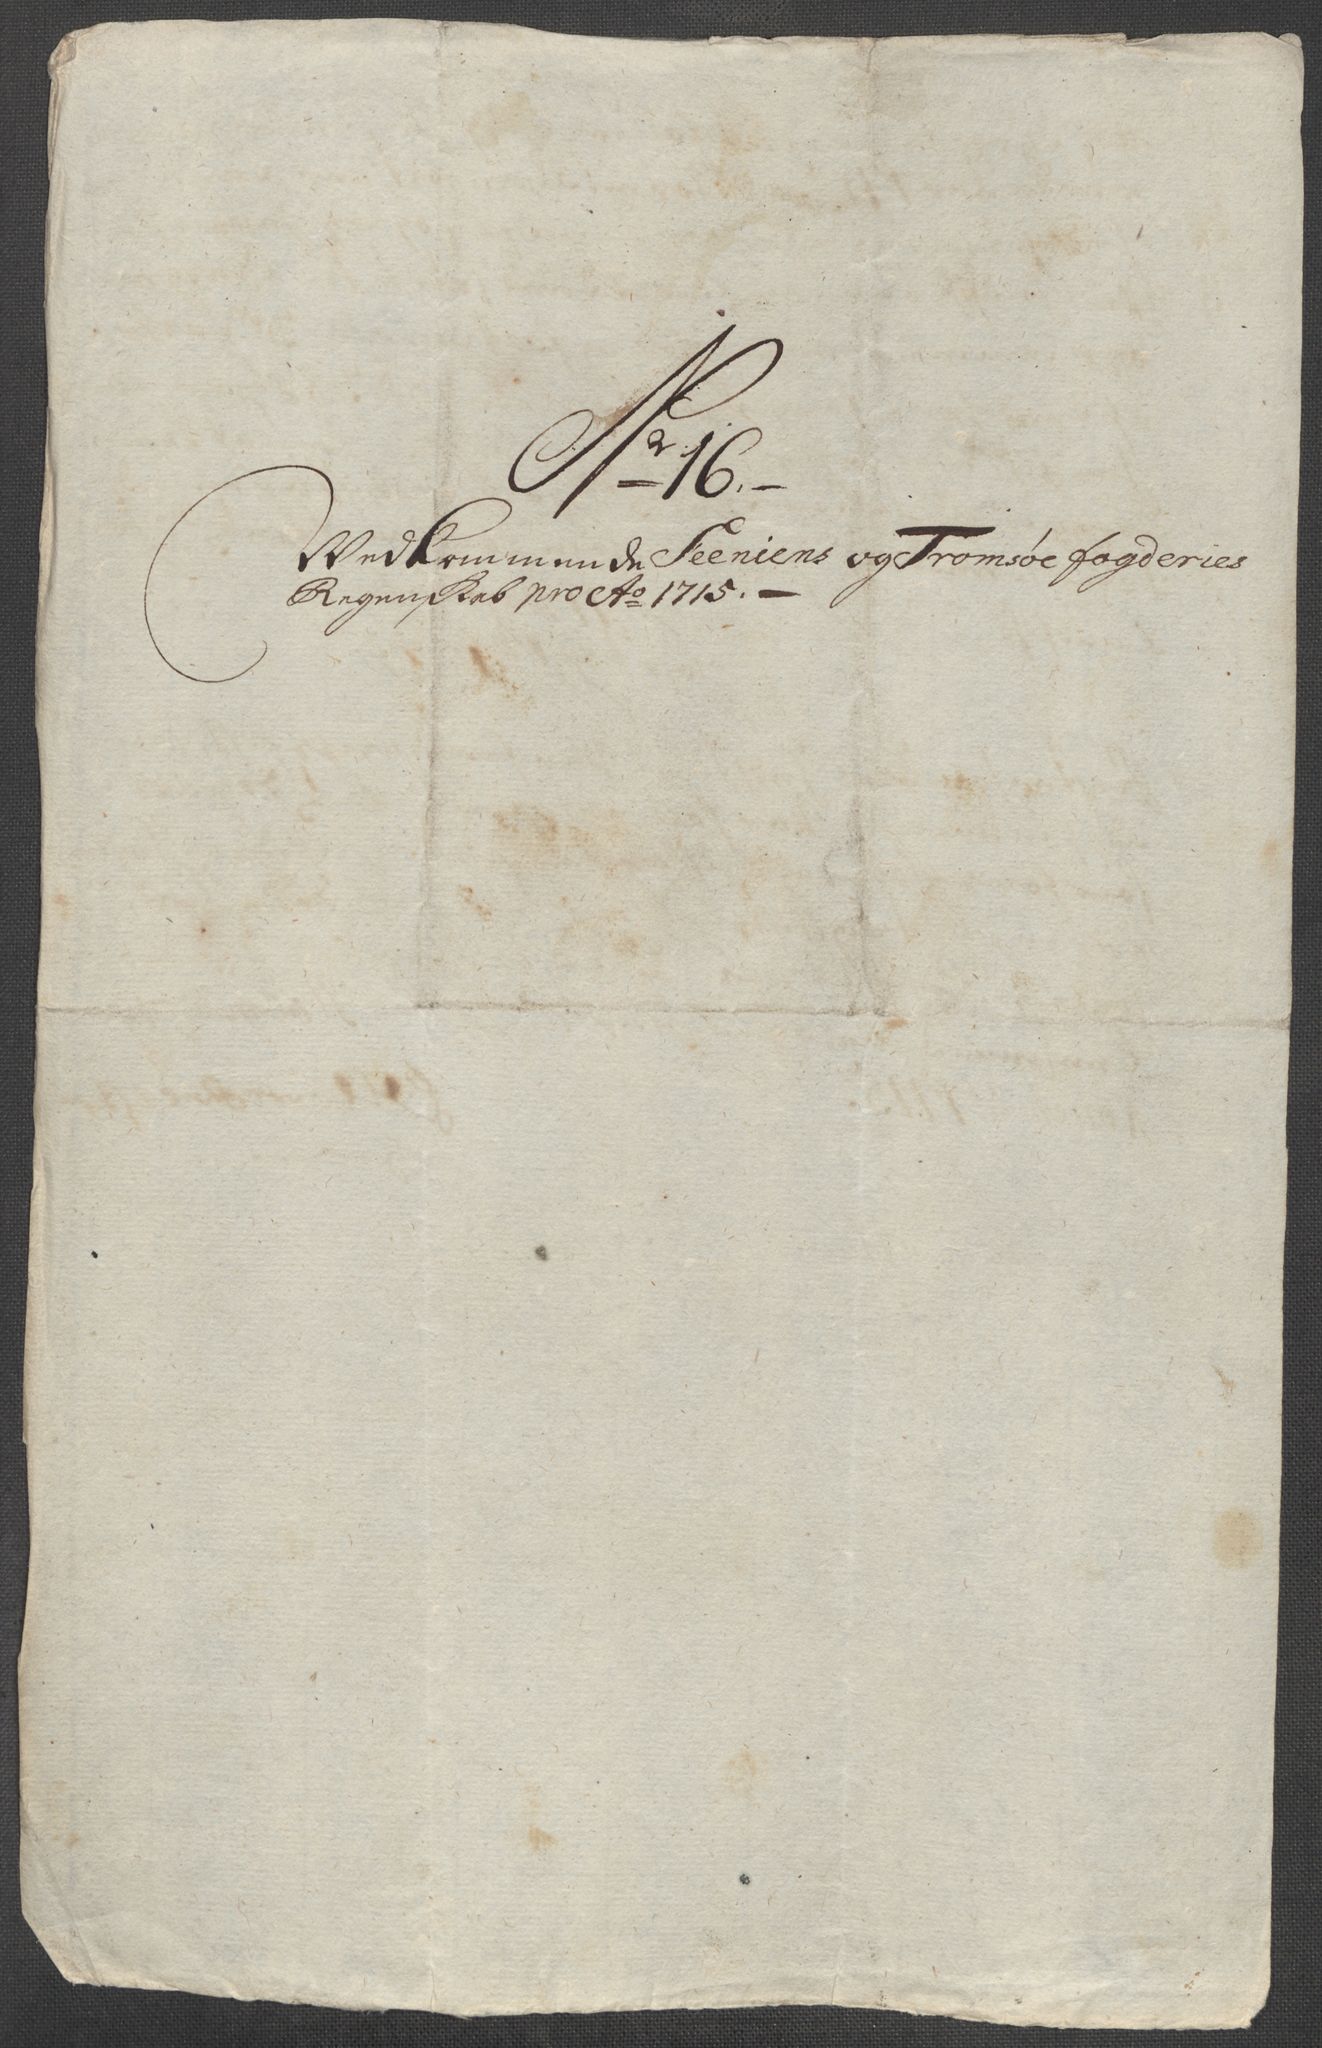 No 16.
Vedkommende Seeniens og Tromsøe fogderies
Regenskab pro Ao 1715.